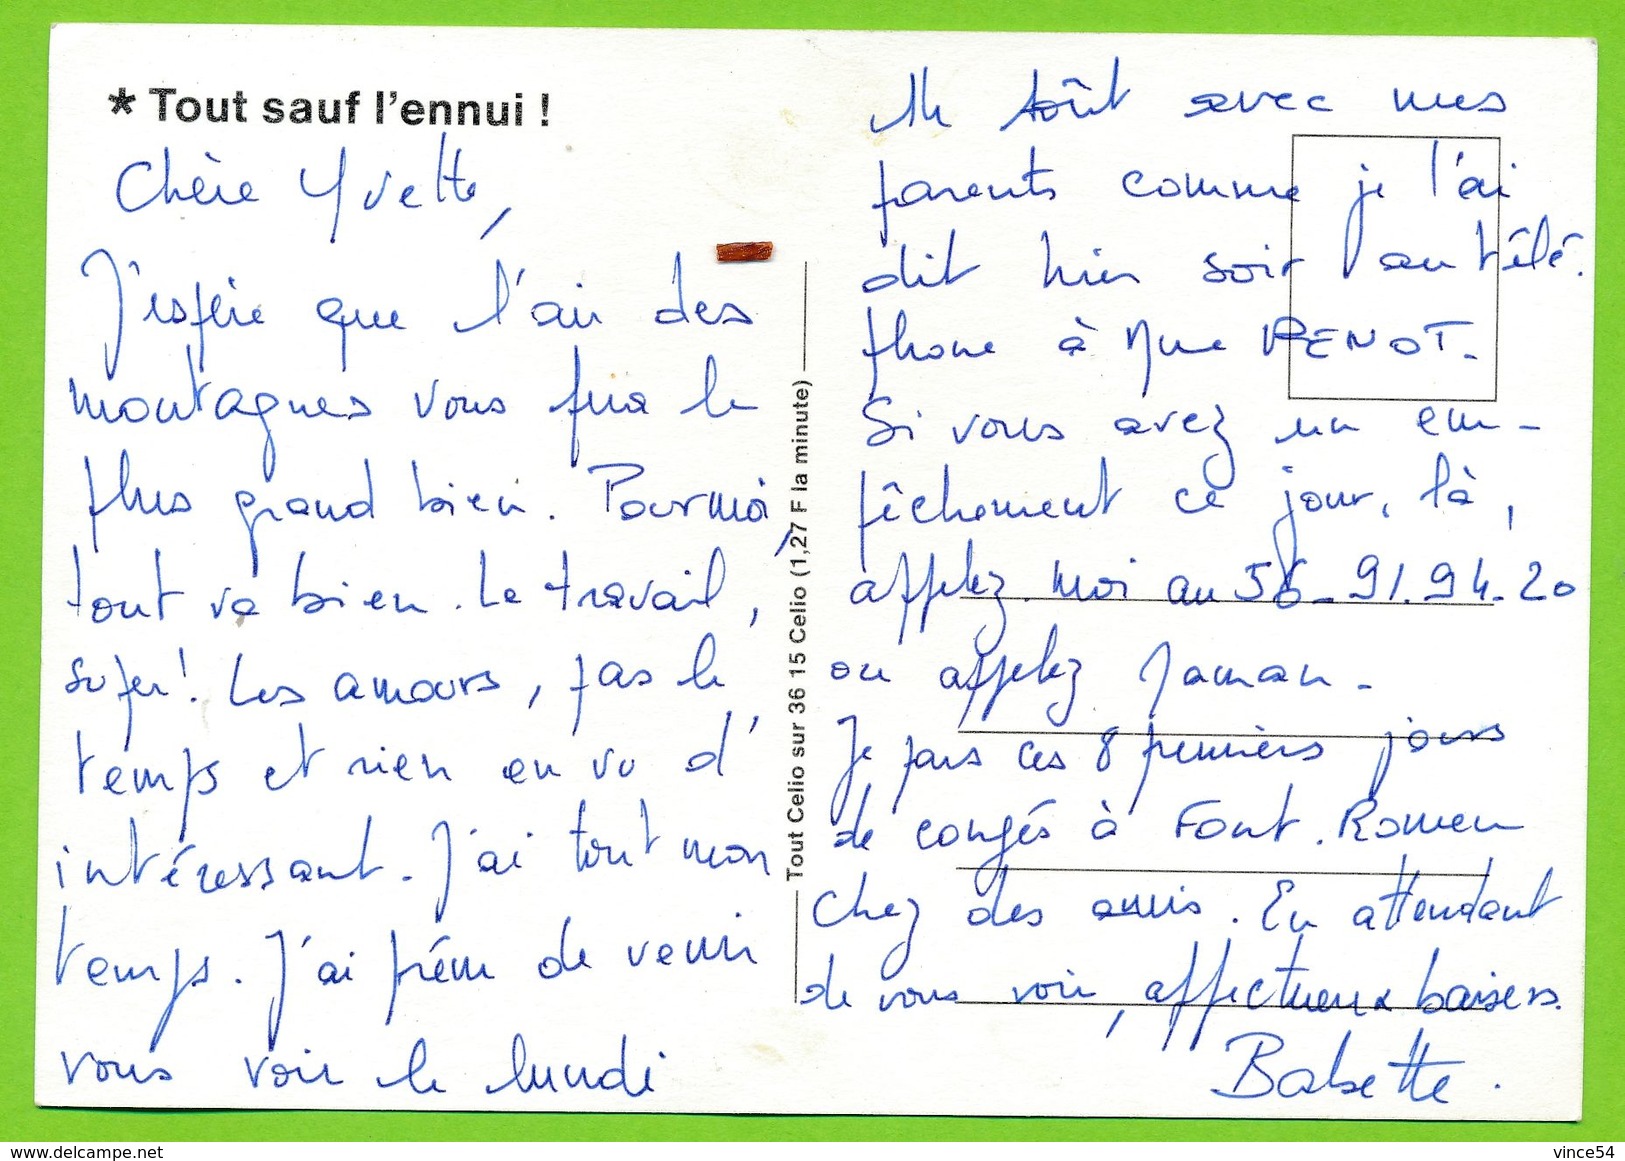 * Tout sauf l'ennui !
Chère Yvette,
J'espère que l'air des
montagnes vous fera le
plus grand bien. Pour moi,
tout va bien. Le travail,
super! Les amours, pas le
temps et rien en vu d'
intéressant. J'ai tout mon
temps. J'ai prévu de venir
vous voir le lundi
Tout Celio sur 36 15 Celio (1,27 F la minute)
août avec mes
parents comme je l'ai
dit hier soir au télé-
phone à Mme PENOT.
Si vous avez un em-
pêchement ce jour, là,
appelez. moi au 56_91.94.20
ou appelez Maman.
Je pars ces 8 premiers jours
de congés à Font. Romeu
chez des amis. En attendant
de vous voir, affectueux baisers.
Babette.
delcampe.net
vince54